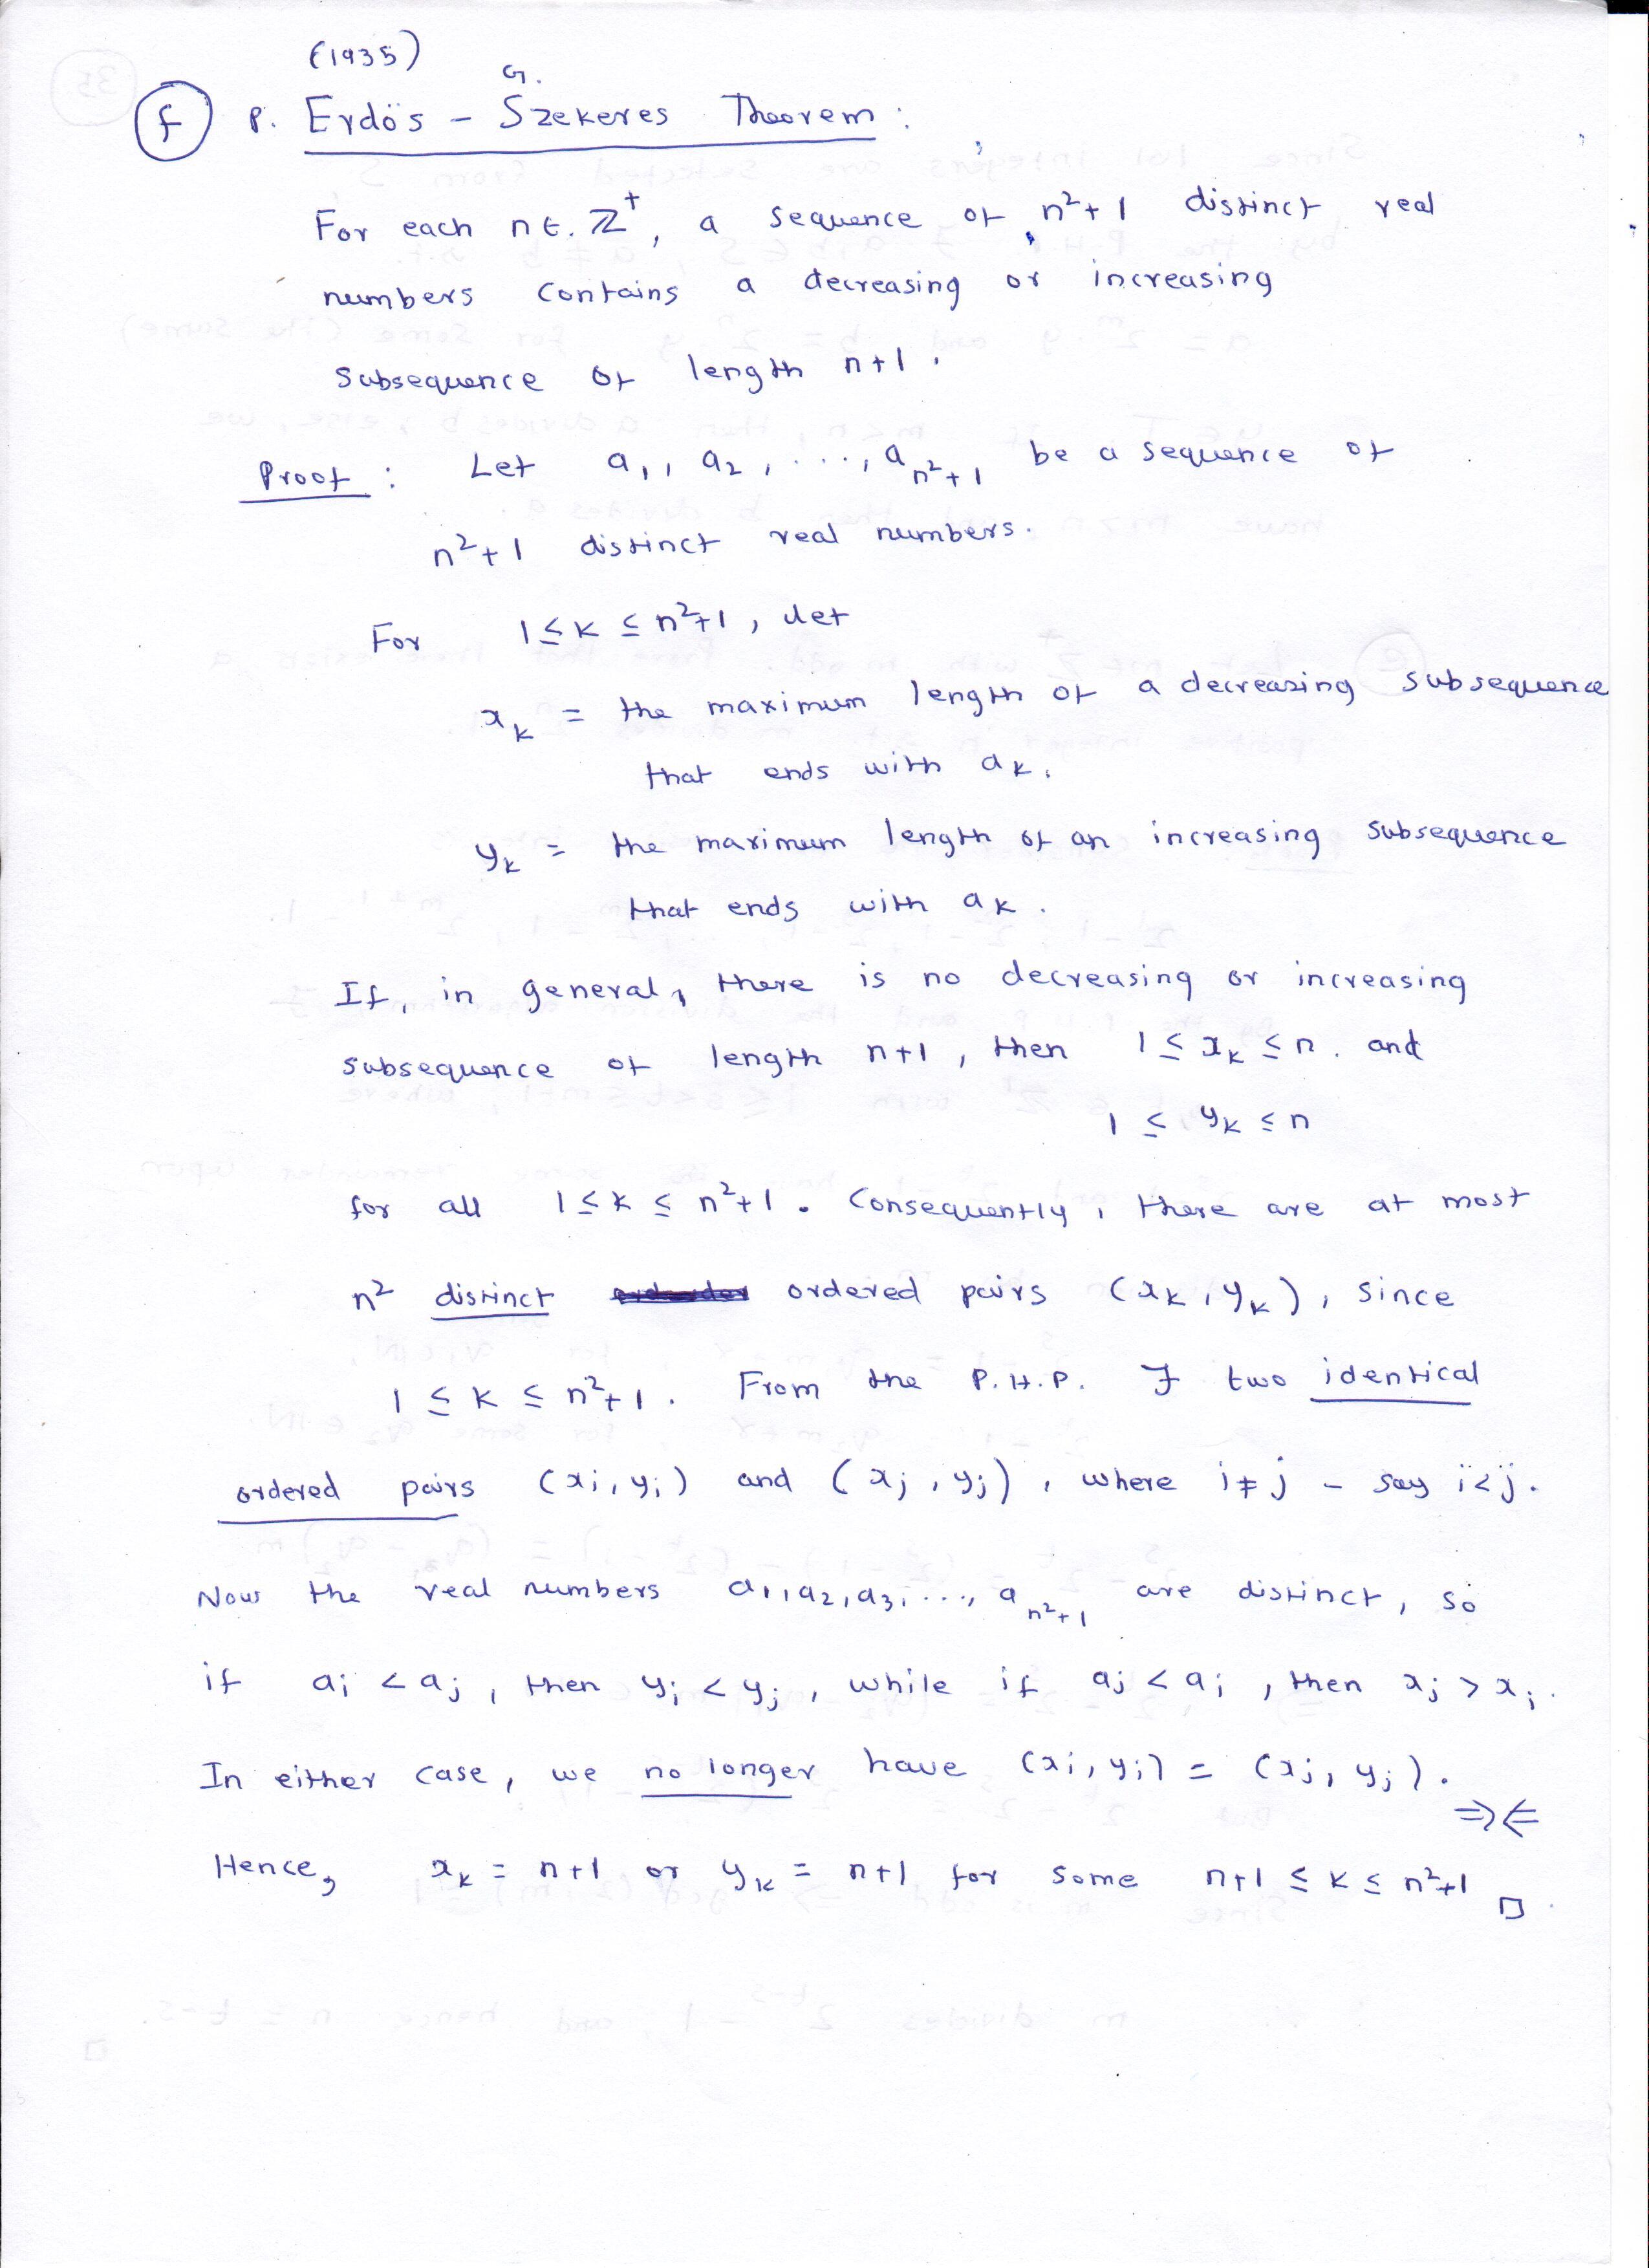 (1935)
(f) P. Erdös - G. Szekeres Theorem :
For each n ∈ ℤ⁺, a sequence of n²+1 distinct real
numbers contains a decreasing or increasing
subsequence of length n+1.
Proof : Let a₁, a₂, ..., a_{n²+1} be a sequence of
n²+1 distinct real numbers.
For 1 ≤ k ≤ n²+1, let
x_k = the maximum length of a decreasing subsequence
that ends with a_k.
y_k = the maximum length of an increasing subsequence
that ends with a_k.
If, in general, there is no decreasing or increasing
subsequence of length n+1, then 1 ≤ x_k ≤ n. and
1 ≤ y_k ≤ n
for all 1 ≤ k ≤ n²+1. Consequently, there are at most
n² distinct ordered pairs (x_k, y_k), since
1 ≤ k ≤ n²+1. From the P.H.P. ∃ two identical
ordered pairs (x_i, y_i) and (x_j, y_j), where i ≠ j - say i<j.
Now the real numbers a₁, a₂, a₃, ..., a_{n²+1} are distinct, so
if a_i < a_j, then y_i < y_j, while if a_j < a_i, then x_j > x_i.
In either case, we no longer have (x_i, y_i) = (x_j, y_j).
⇒⇐
Hence, x_k = n+1 or y_k = n+1 for some n+1 ≤ k ≤ n²+1 □